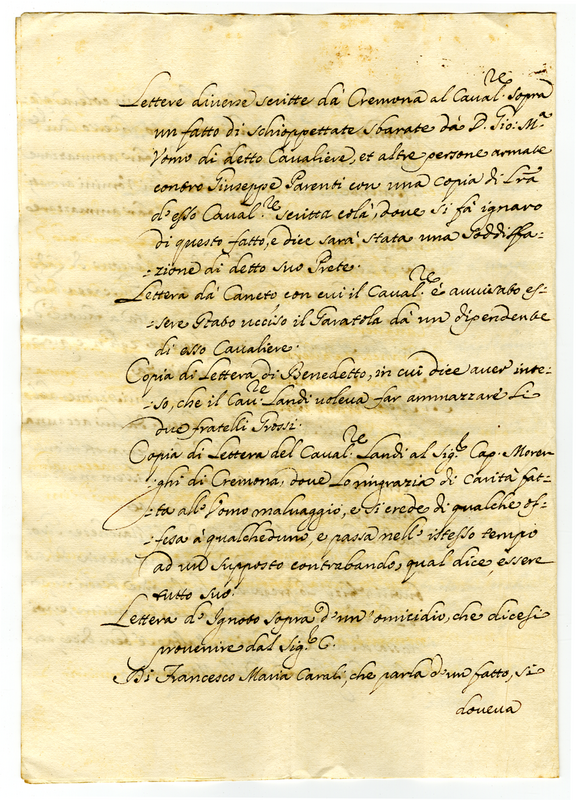 Lettere diverse scritte da Cremona al Caval.re sopra
un fatto di schioppettate sbarate da D. Gio: M.a
Uomo di detto Cavaliere, et altre persone armate
contro Giuseppe Parenti con una copia di Lra
d'esso Caval.re scritta colà, dove si fà ignaro
di questo fatto, e dice sarà stata una soddiffa-
-zione di detto suo Prete.
Lettera da Caneto con cui il Caval.re è avvisato es-
-sere stato ucciso il Garatola da un dipendente
di esso Cavaliere.
Copia di Lettera di Benedetto, in cui dice aver inte-
-so, che il Cav.re Landi voleva far ammazzare li
due fratelli Grossi.
Copia di Lettera del Caval.re Landi al Sig.r Cap. Moren-
-ghi di Cremona, dove Lo ringrazia di carità fat-
-ta all'homo malvaggio, e si crede di qualche of-
-fesa à qualcheduno, e passa nell'istesso tempo
ad un supposto contrabando, qual dice, essere
tutto suo.
Lettera d'Ignoto sopra d'un'omicidio, che dicesi
provenire dal Sig.r C.
Di Francesco Maria Carali, che parla d'un fatto, si
doveva